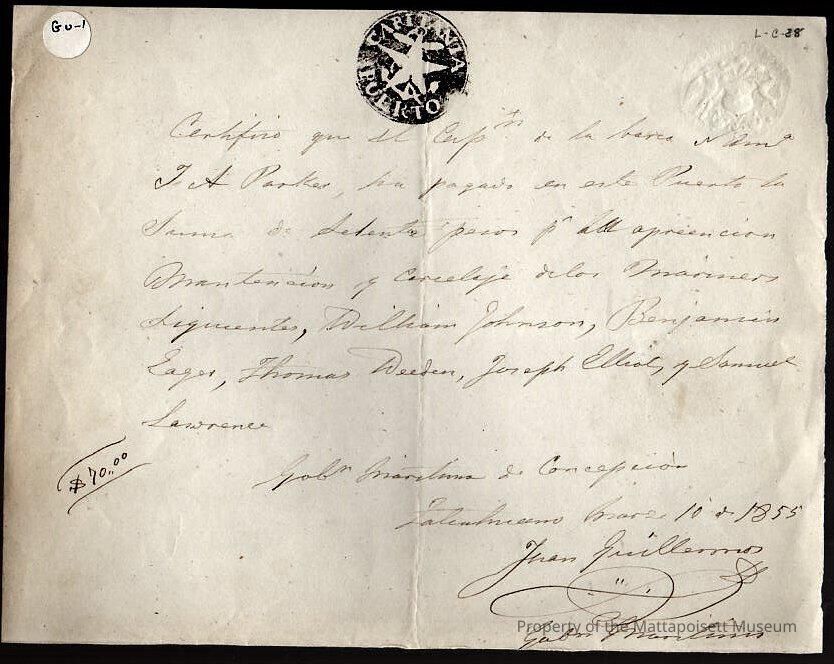 GU-1
L-C-28
CAPITANIA
PUERTO
Certifico que el Cap.tn de la barca Nam.a
J. A Parker, ha pagado en este Puerto la
Suma de Setenta pesos p.r apreencion
Mantencion y carcelaje delos Marineros
Siguientes, William Johnson, Benjamin
Eager, Thomas Weeden, Joseph Elliot, y Samuel
Lawrence
$70..00
Gob.n Maritima de Concepcion
Talcahuano Marzo 10 de 1855
Juan Guillermos
Gob.r Maritimo
Property of the Mattapoisett Museum